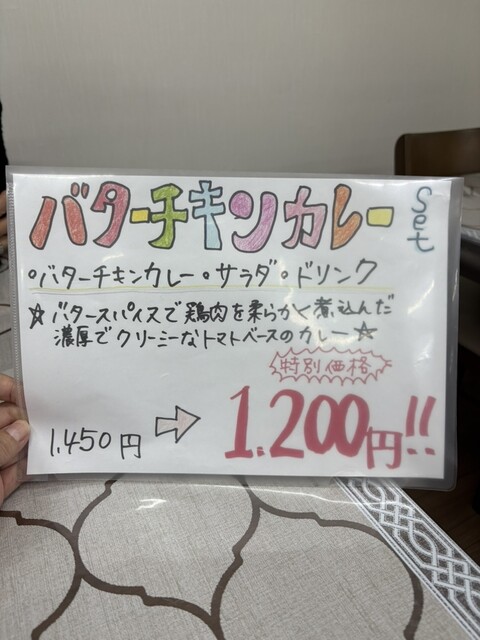 バターチキンカレー set
・バターチキンカレー・サラダ・ドリンク
☆バタースパイスで鶏肉を柔らかく煮込んだ
濃厚でクリーミーなトマトベースのカレー☆
特別価格
1.450円 ⇨ 1.200円!!